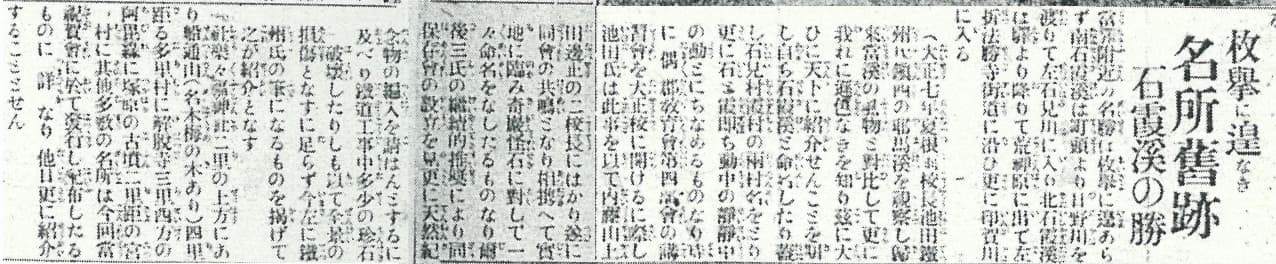 枚擧に遑なき
名所舊跡
石霞溪の勝
當驛附近の名勝は枚擧に遑あら
ず南石霞溪は町頭より日野川を
渡りて左石見川に入り北石霞溪
は驛より降りて荒神原に出て左
折法勝寺街道に沿ひ更に印賀川
に入る
(大正七年夏根雨校長池田鐵
州氏鎭西の耶馬溪を觀察し歸
來當溪の風物と對比して更に
我れに遜色なきを知り玆に大
ひに天下に紹介せんことを期
し自ら石霞溪と命名したり蓋
し石見村霞村の兩村名をとり
更に石と霞即ち動中の靜靜中
の動とにちなめるものなり時
に偶郡敎育會第四部會の講
習會を大正校に開けるに際し
池田氏は此事を以て内藤山上
田邊正の二校長にはかり遂に
同會の共鳴となり相携へて實
地に臨み奇巖怪石に對して一
々命名をなしたるものなり爾
後三氏の繼續的推奬により同
保存會の設立を見更に天然紀
念物の編入を請はんとするに
及べり鐵道工事中多少の珍石
破壞したりしも以て全景の
損傷となすに足らず今左に鐵
州氏の筆になるものを揭げて
之が紹介となす
『社樂々福神社二里の上方にあ
り船通山(名木梅の木あり)四里
距る多里村に解脱寺三里西方の
阿毘緣に塚原の古墳二里距の宮
村に其他多數の名所は今回當
祝賀會に於て發行し配布したる
ものに詳なり他日更に紹介
することゝせん